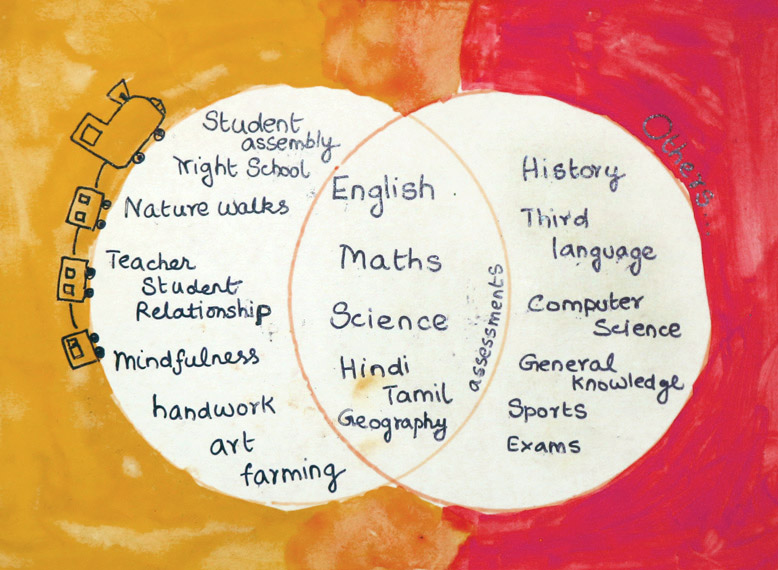 Student
assembly
Night School
Nature walks
Teacher
Student
Relationship
mindfulness
handwork
art
farming
English
Maths
Science
Hindi
Tamil
Geography
assessments
History
Third
language
Computer
Science
General
knowledge
Sports
Exams
Others...